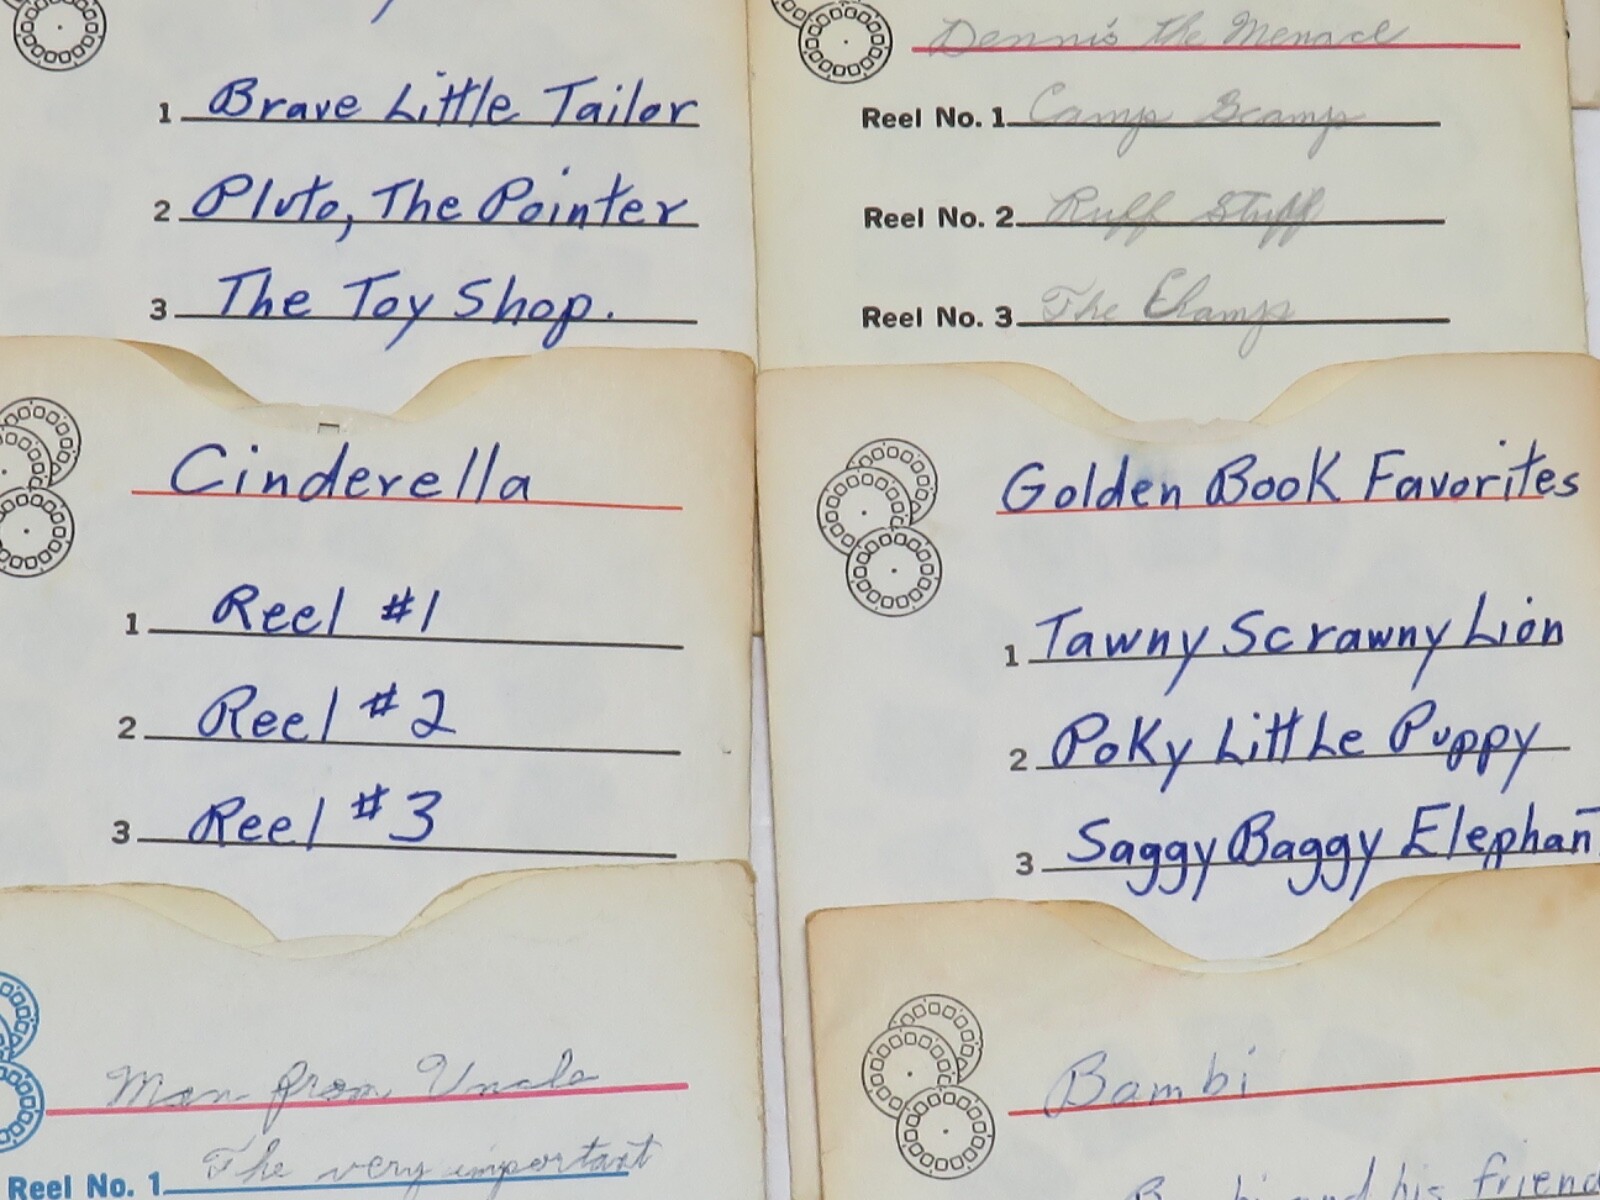 1 Brave Little Tailor
2 Pluto, The Pointer
3 The Toy Shop.
Dennis the Menace
Reel No. 1 Camp Scamp
Reel No. 2 Ruff Stuff
Reel No. 3 The Champ
Cinderella
1 Reel #1
2 Reel #2
3 Reel #3
Golden Book Favorites
1 Tawny Scrawny Lion
2 Poky Little Puppy
3 Saggy Baggy Elephant
Man from Uncle
Reel No. 1 The very important
Bambi
Bambi and his friend